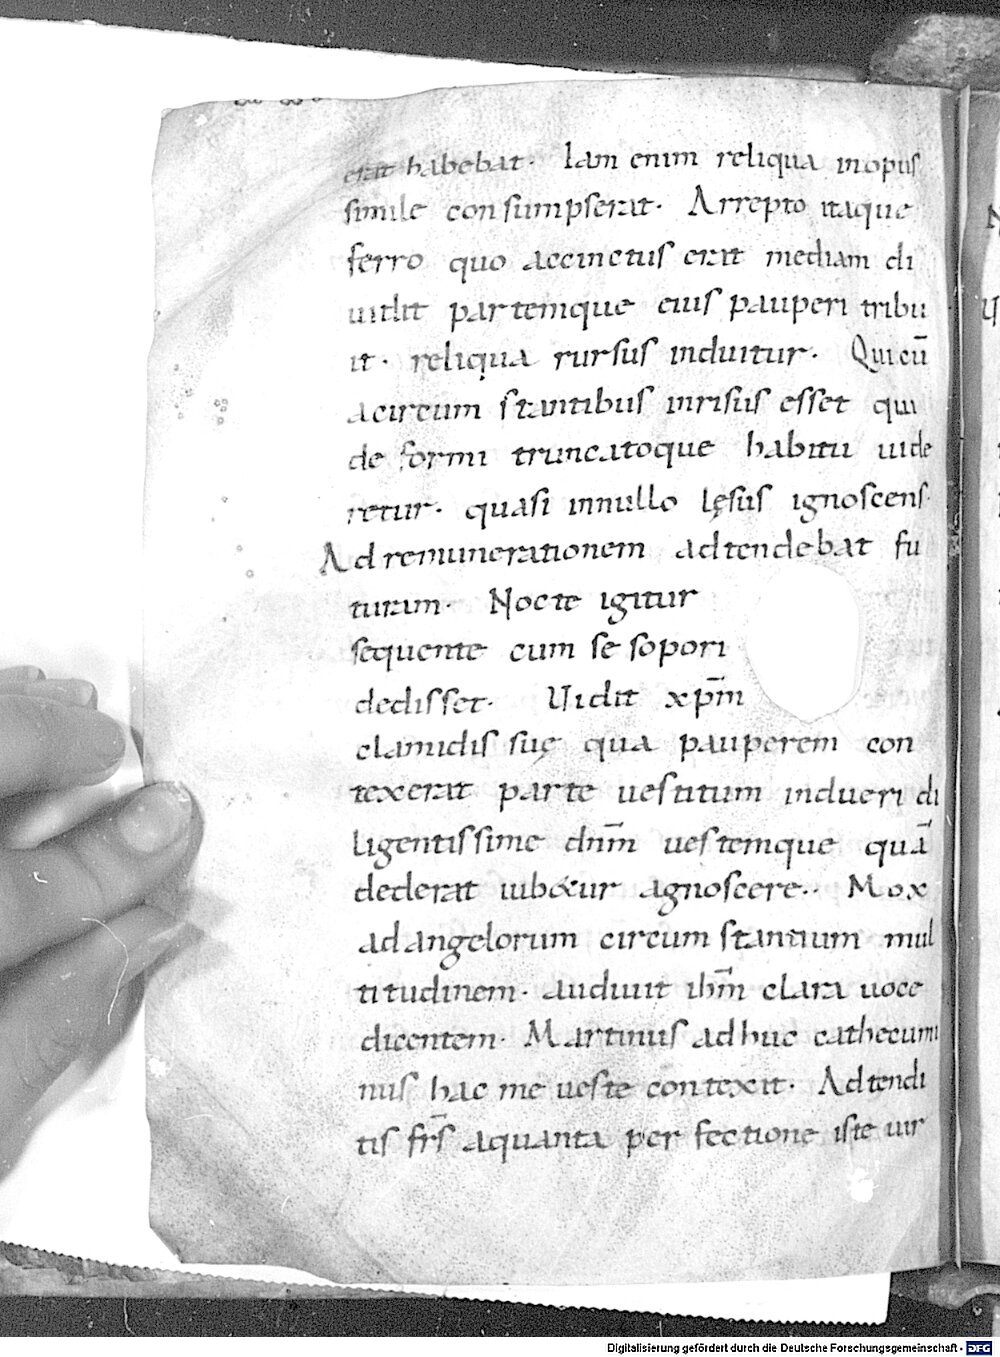 erat habebat. Iam enim reliqua inopus
simile consumpserat. Arrepto itaque
ferro quo accinctus erat mediam di
uidit partemque eius pauperi tribu
it. reliqua rursus induitur. Quicū
acircum stantibus inrisus esset qui
de formi truncatoque habitu uide
retur. quasi innullo lęsus ignoscens.
Ad remunerationem adtendebat fu
turam. Nocte igitur
sequente cum se sopori
dedisset. Uidit xp̄m
clamidis suę qua pauperem con
texerat parte uestitum indueri di
ligentissime dn̄m uestemque quā
dederat iubetur agnoscere.. Mox
ad angelorum circum stantium mul
titudinem. audiuit ih̄m clara uoce
dicentem. Martinus adhuc cathecumi
nus hac me ueste contexit. Adtendi
tis fr̄s aquanta per fectione iste uir
Digitalisierung gefördert durch die Deutsche Forschungsgemeinschaft - DFG